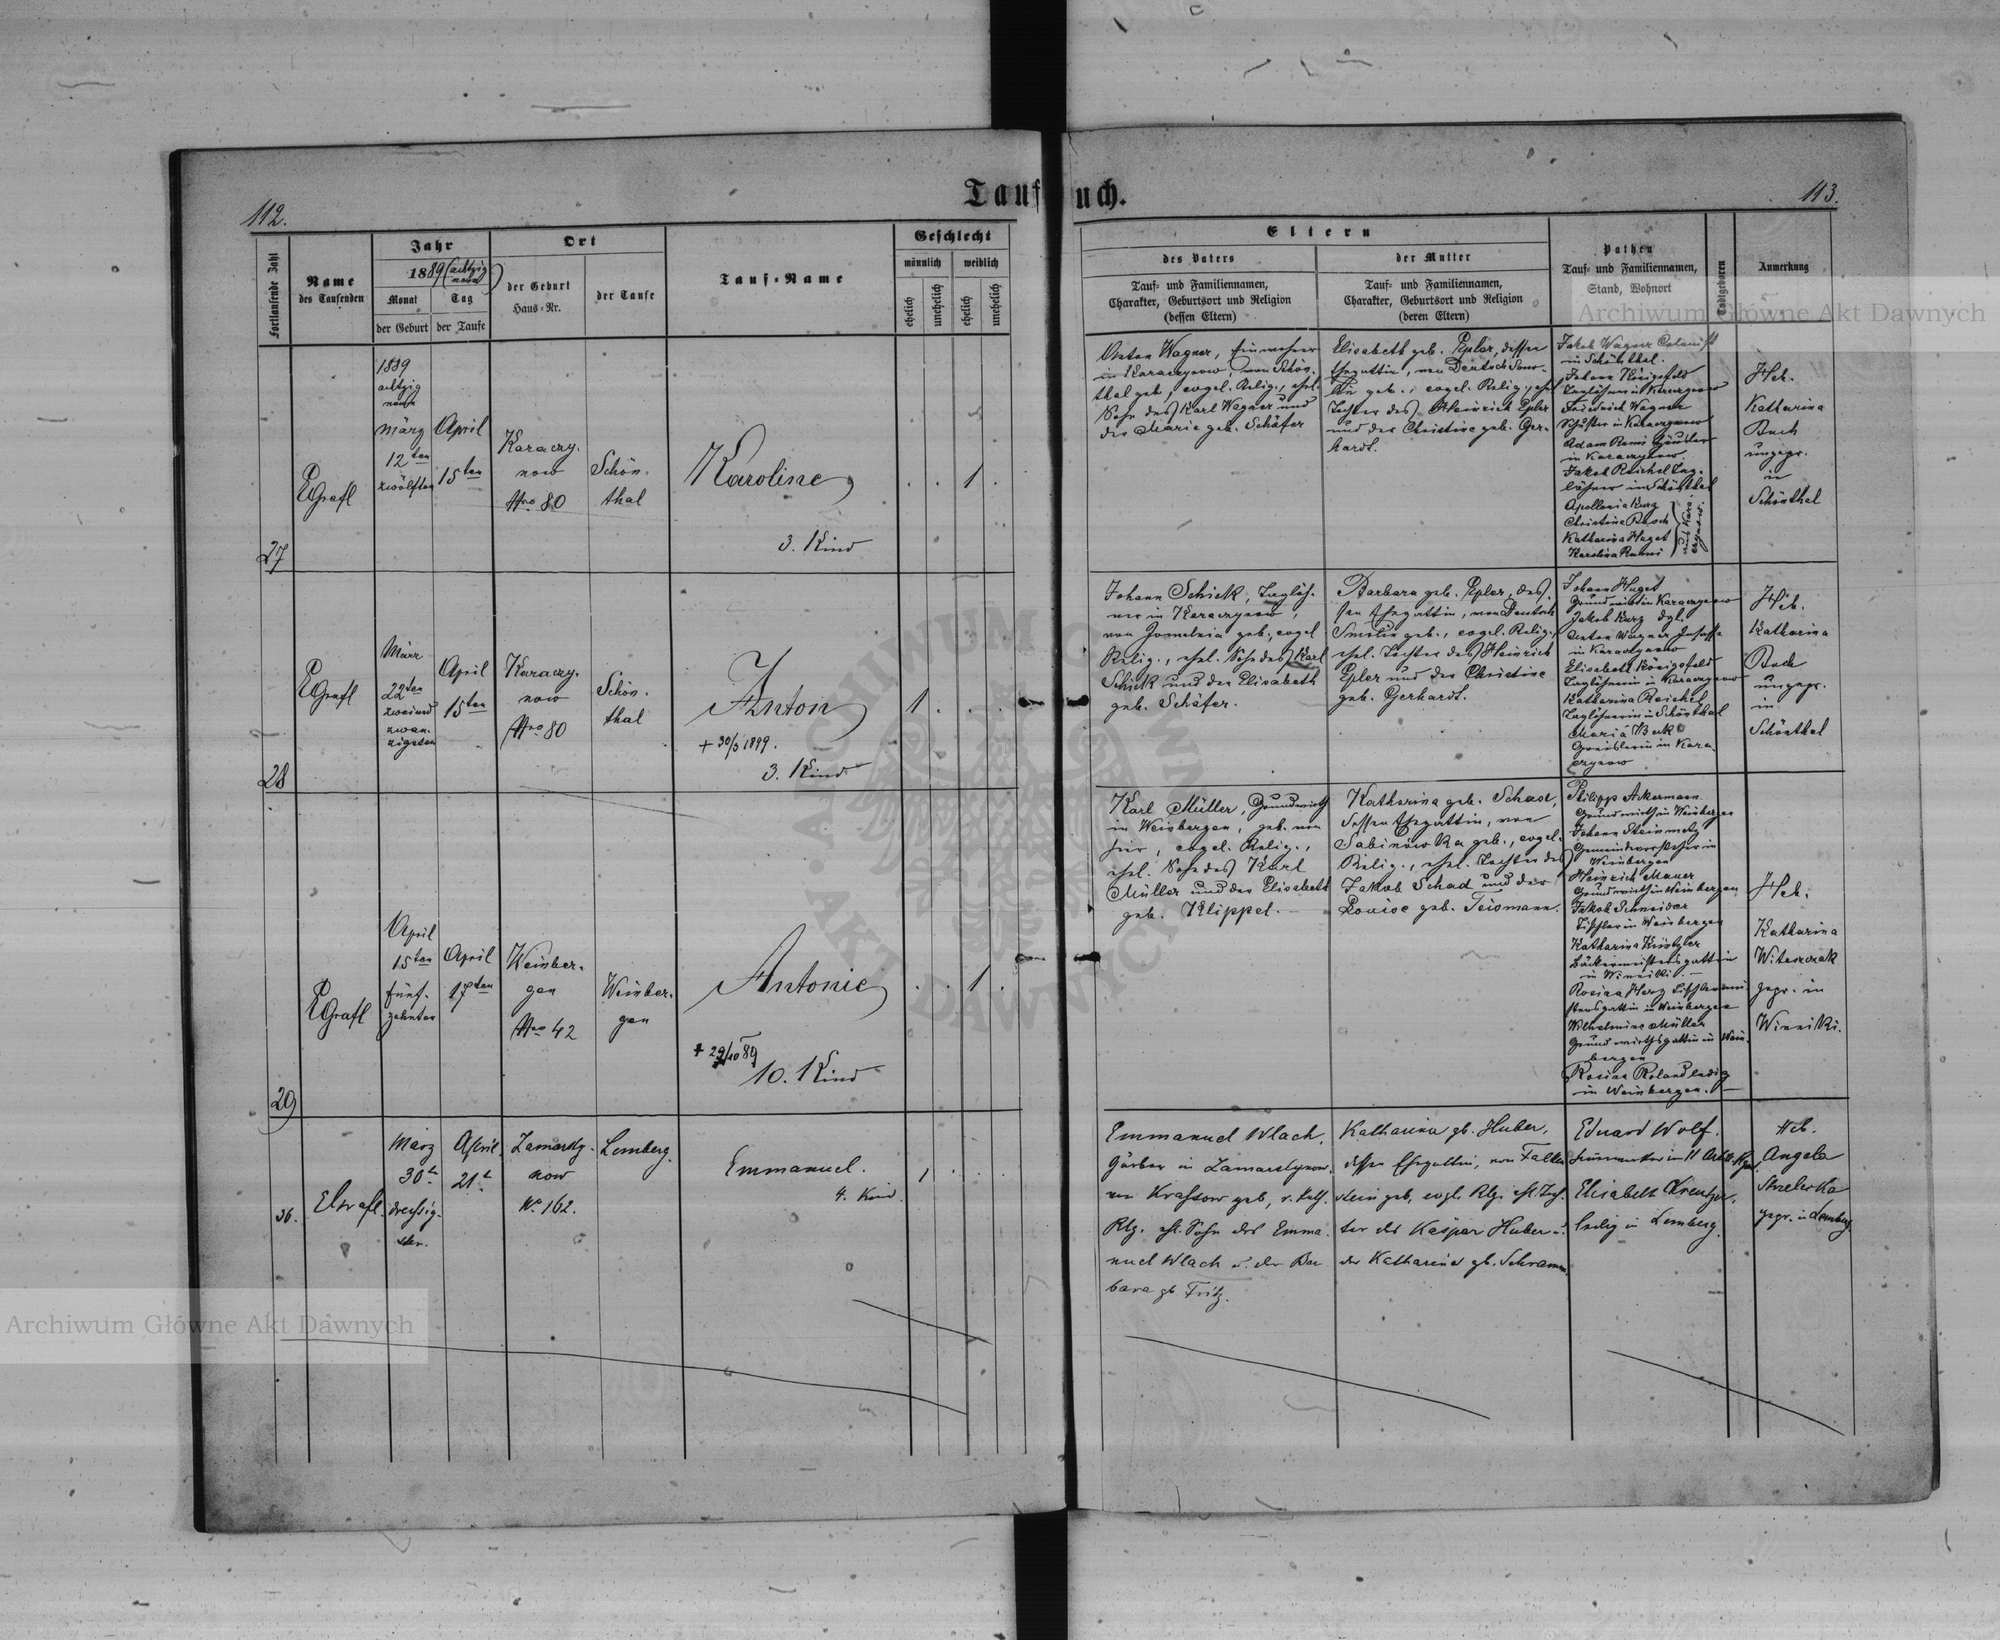 Taufbuch.
112.
113.
Fortlaufende Zahl
Name
des Taufenden
Jahr
1889 (achtzig
neun)
Monat
Tag
der Geburt
der Taufe
Ort
der Geburt
Haus-Nr.
der Taufe
Tauf-Name
Geschlecht
männlich
weiblich
ehelich
unehelich
ehelich
unehelich
Eltern
des Vaters
Tauf- und Familiennamen,
Charakter, Geburtsort und Religion
(dessen Eltern)
der Mutter
Tauf- und Familiennamen,
Charakter, Geburtsort und Religion
(deren Eltern)
Pathen
Tauf- und Familiennamen,
Stand, Wohnort
Todtgeboren
Anmerkung
27
EGrafl
1889
achtzig
neun
März
12ten
zwölften
April
15ten
Karaczy-
now
Nro 80
Schön-
thal
Karoline
3. Kind
. . 1 .
Anton Wagner, Einwohner
in Karaczynow, von Schön-
thal geb., evgel. Relig., ehel.
Sohn des Karl Wagner und
der Marie geb. Schäfer
Elisabeth geb. Epler, dessen
Ehegattin, von Deutsch Smo-
lin geb., evgel. Relig., ehel.
Tochter des Heinrich Epler
und der Christine geb. Ger-
hardt.
Jakob Wagner Colonist
in Schönthal.
Johann Königsfeld
Taglöhner in Karaczynow
Friedrich Wagner
Schuster in Karaczynow
Adam Rumi Häusler
in Karaczynow.
Jakob Reichel Tag-
löhner in Schönthal
Apollonia Kurz
Christine Rasch
Katharina Huget
Karolina Rumi
Heb.
Katharina
Buch
ungepr.
in
Schönthal
28
EGrafl
März
22ten
zweiund
zwan-
zigsten
April
15ten
Karaczy-
now
Nro 80
Schön-
thal
Anton
+ 30/5 1899.
3. Kind
1 . . .
Johann Schick, Taglöh-
ner in Karaczynow,
von geb., evgel
Relig., ehel. Sohn des Karl
Schick und der Elisabeth
geb. Schäfer.
Barbara geb. Epler, des-
sen Ehegattin, von Deutsch
Smolin geb., evgel. Relig.,
ehel. Tochter des Heinrich
Epler und der Christine
geb. Gerhardt.
Johann Huget
Grundwirth in Karaczynow
Jakob Kurz dgl.
Anton Wagner Insasse
in Karaczynow
Elisabeth Königsfeld
Taglöhnerin in Karaczynow
Katharina Reichel
Taglöhnerin in Schönthal
Maria Beck
in Kara-
czynow
Heb.
Katharina
Buch
ungepr.
in
Schönthal
29
EGrafl
April
15ten
fünf-
zehnten
April
17ten
Weinber-
gen
Nro 42
Weinber-
gen
Antonie
+ 29/10 89
10. Kind
. . 1 .
Karl Müller, Grundwirth
in Weinbergen, geb. von
hier, evgel. Relig.,
ehel. Sohn des Karl
Müller und der Elisabeth
geb. Klippel.
Katharina geb. Schad,
dessen Ehegattin, von
Sabinówka geb., evgel.
Relig., ehel. Tochter des
Jakob Schad und der
Louise geb. Teismann.
Philipp Ackermann
Grundwirth in Weinbergen
Johann Steinmetz
Gemeindevorsteher in
Weinbergen
Heinrich Mauer
Grundwirth in Weinbergen
Jakob Schneider
Tischler in Weinbergen
Katharina Kintzler
Bäckermeistersgattin
in Winniki. —
Rosina Herz Tischlermei-
stersgattin in Weinbergen
Wilhelmine Müller
Grundwirthsgattin in Wein-
bergen
Rosina Roland ledig
in Weinbergen. —
Heb.
Katharina
Witeszczak
gepr. in
Winniki.
30.
EGrafl.
März
30t
dreißig-
sten.
April.
21t
Zamarsty-
now
No 162.
Lemberg.
Emmanuel.
4. Kind.
1 . . .
Emmanuel Wlach,
Gärber in Zamarstynow,
von Krassow geb., r. kath.
Rlg. ehl. Sohn des Emma-
nuel Wlach u. der Bar-
bara gb. Fritz.
Katharina gb. Huber,
dessen Ehegattin, von Falken-
stein geb., evgl. Rlg. ehl. Toch-
ter des Kaspar Huber u.
der Katharina gb. Schramm.
Eduard Wolf.
Elisabeth Kreutzer,
ledig in Lemberg.
Heb.
Angela
Strelecka
gepr. in Lemberg.
Archiwum Główne Akt Dawnych
Archiwum Główne Akt Dawnych
ARCHIWUM GŁÓWNE AKT DAWNYCH